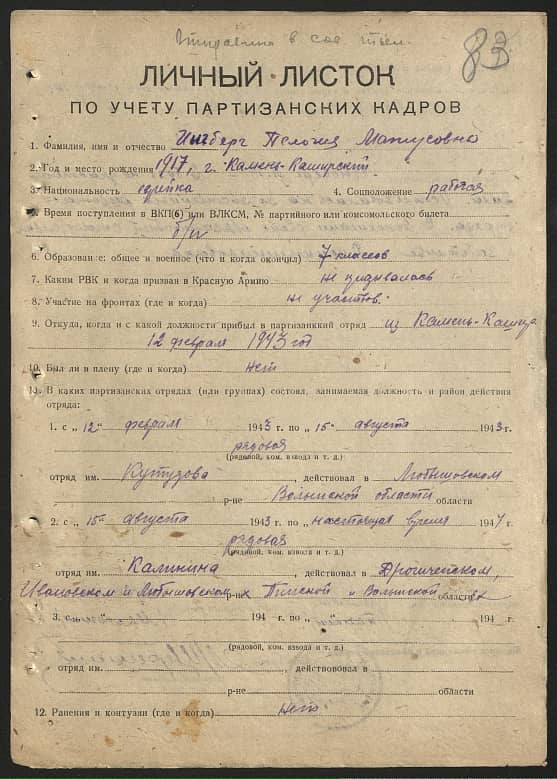 Отправлена в сов. тыл.
83
ЛИЧНЫЙ ЛИСТОК
ПО УЧЕТУ ПАРТИЗАНСКИХ КАДРОВ
1. Фамилия, имя и отчество Ингберг Матусовна
2. Год и место рождения 1917, г. Камень-Каширский
3. Национальность еврейка 4. Соцположение рабочая
5. Время поступления в ВКП(б) или ВЛКСМ, № партийного или комсомольского билета
б/п
6. Образование: общее и военное (что и когда окончил) 7 классов
7. Каким РВК и когда призван в Красную Армию не призывалась
8. Участие на фронтах (где и когда) не участвов.
9. Откуда, когда и с какой должности прибыл в партизанкий отряд из Камень-Кашира
12 февраля 1943 год
10. Был ли в плену (где и когда) нет
11. В каких партизанских отрядах (или группах) состоял, занимаемая должность и район действия
отряда:
1. с „12“ февраля 1943 г. по „15“ августа 1943 г.
рядовая
(рядовой, ком. взвода и т. д.)
отряд им. Кутузова, действовал в Любешовском
р-не Волынской области области
2. с „15“ августа 1943 г. по „настоящее время 1944 г.
рядовая
(рядовой, ком. взвода и т. д.)
отряд им. Калинина, действовал в Дрогиченском,
Ивановском и Любешовском р-не Пинской и Волынской области
3. с „ 194 г. по „ 194 г.
(рядовой, ком. взвода и т. д.)
отряд им. , действовал в
р-не области
12. Ранения и контузии (где и когда) нет